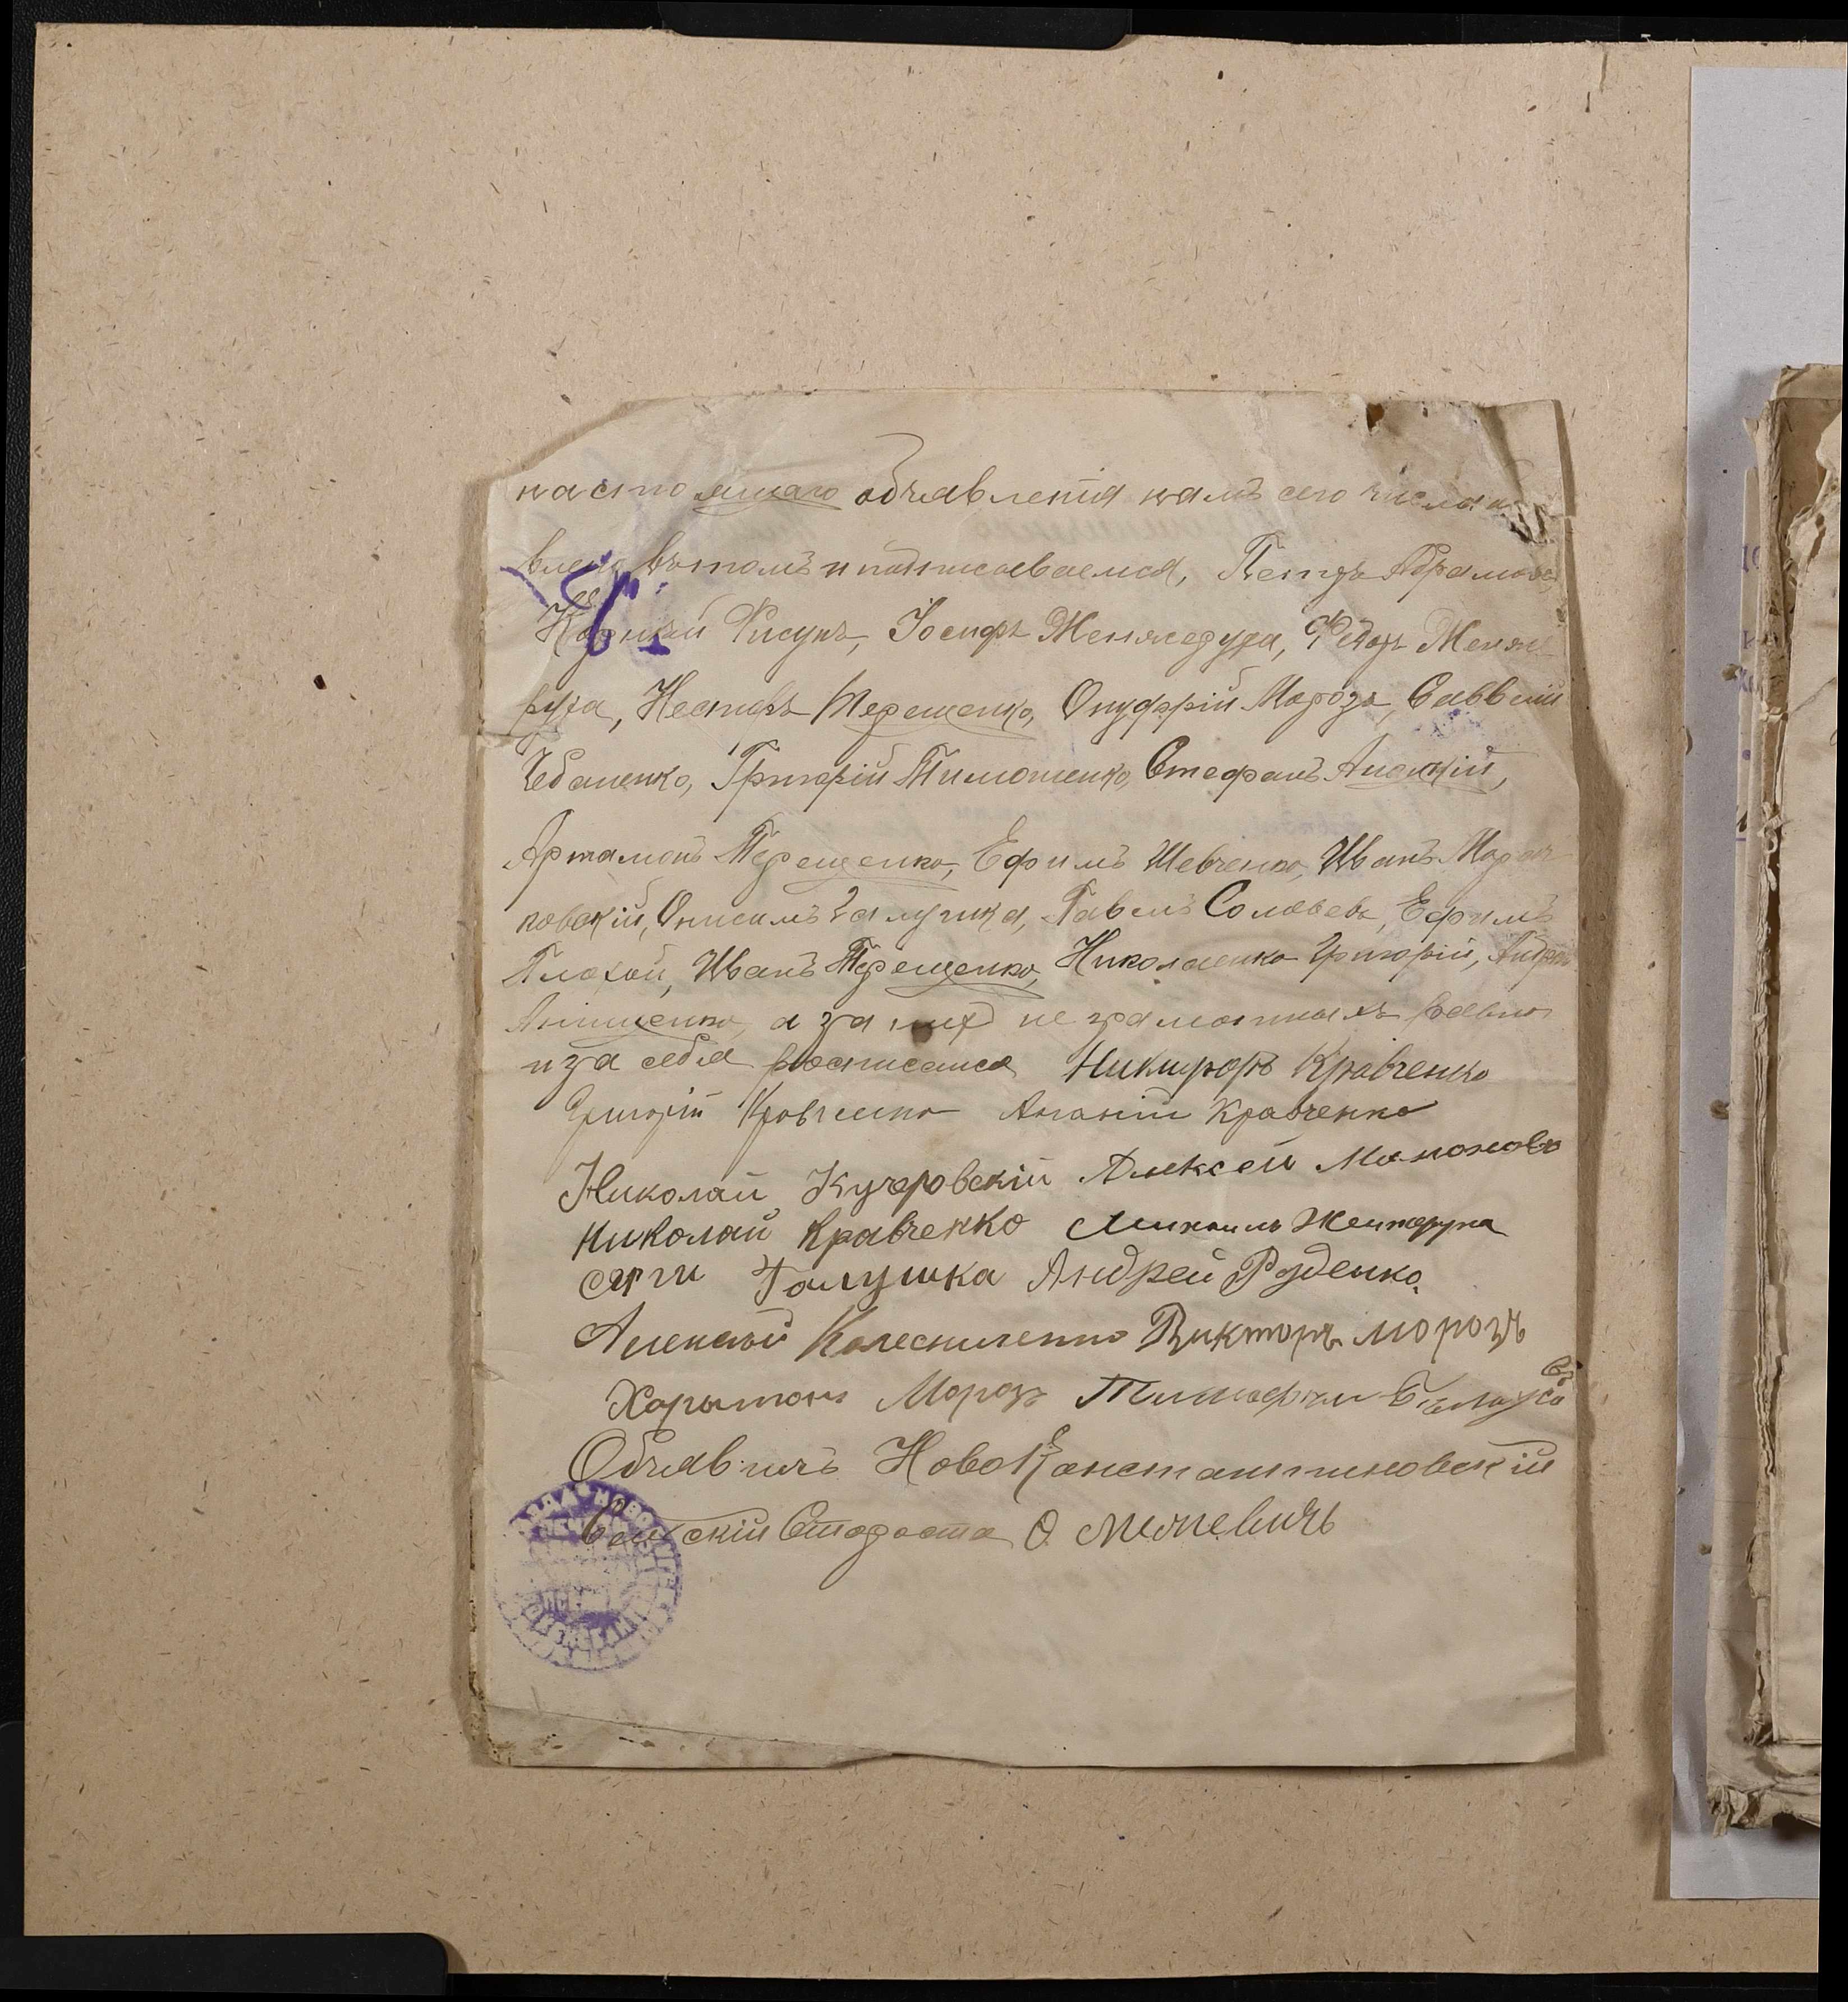 настоящаго объявления намъ сего числа
въ томъ и подписываемся, Петръ Абрамовъ,
Фисунъ, Іосифъ Менжедуга, Федоръ Менже
дуга, Несторъ Терещенко, Онуфрій Морозъ, Савелій
Чебаненко, Григорій Тимошенко, Стефанъ
Артамонъ Терещенко, Ефимъ Шевченко, Иванъ
ковскій, Онисимъ Галушка, Павелъ Соловьевъ, Ефимъ
Плохой, Иванъ Терещенко, Николаенко Григорій, Андрей
Анищенко, а за нихъ не грамотныхъ равно
и за себя росписался Никифоръ Кравченко
Григорій Кравченко Ананій Кравченко
Николай Кучеровскій Алексей Мамоновъ
Николай Кравченко Михаилъ
Сѣрги Галушка Андрей Руденко.
Алексѣй Колесниченко Викторъ Морозъ
Харытонъ Морозъ Тимофѣй
Объявилъ Ново Константиновскій
Сельскій Староста О.